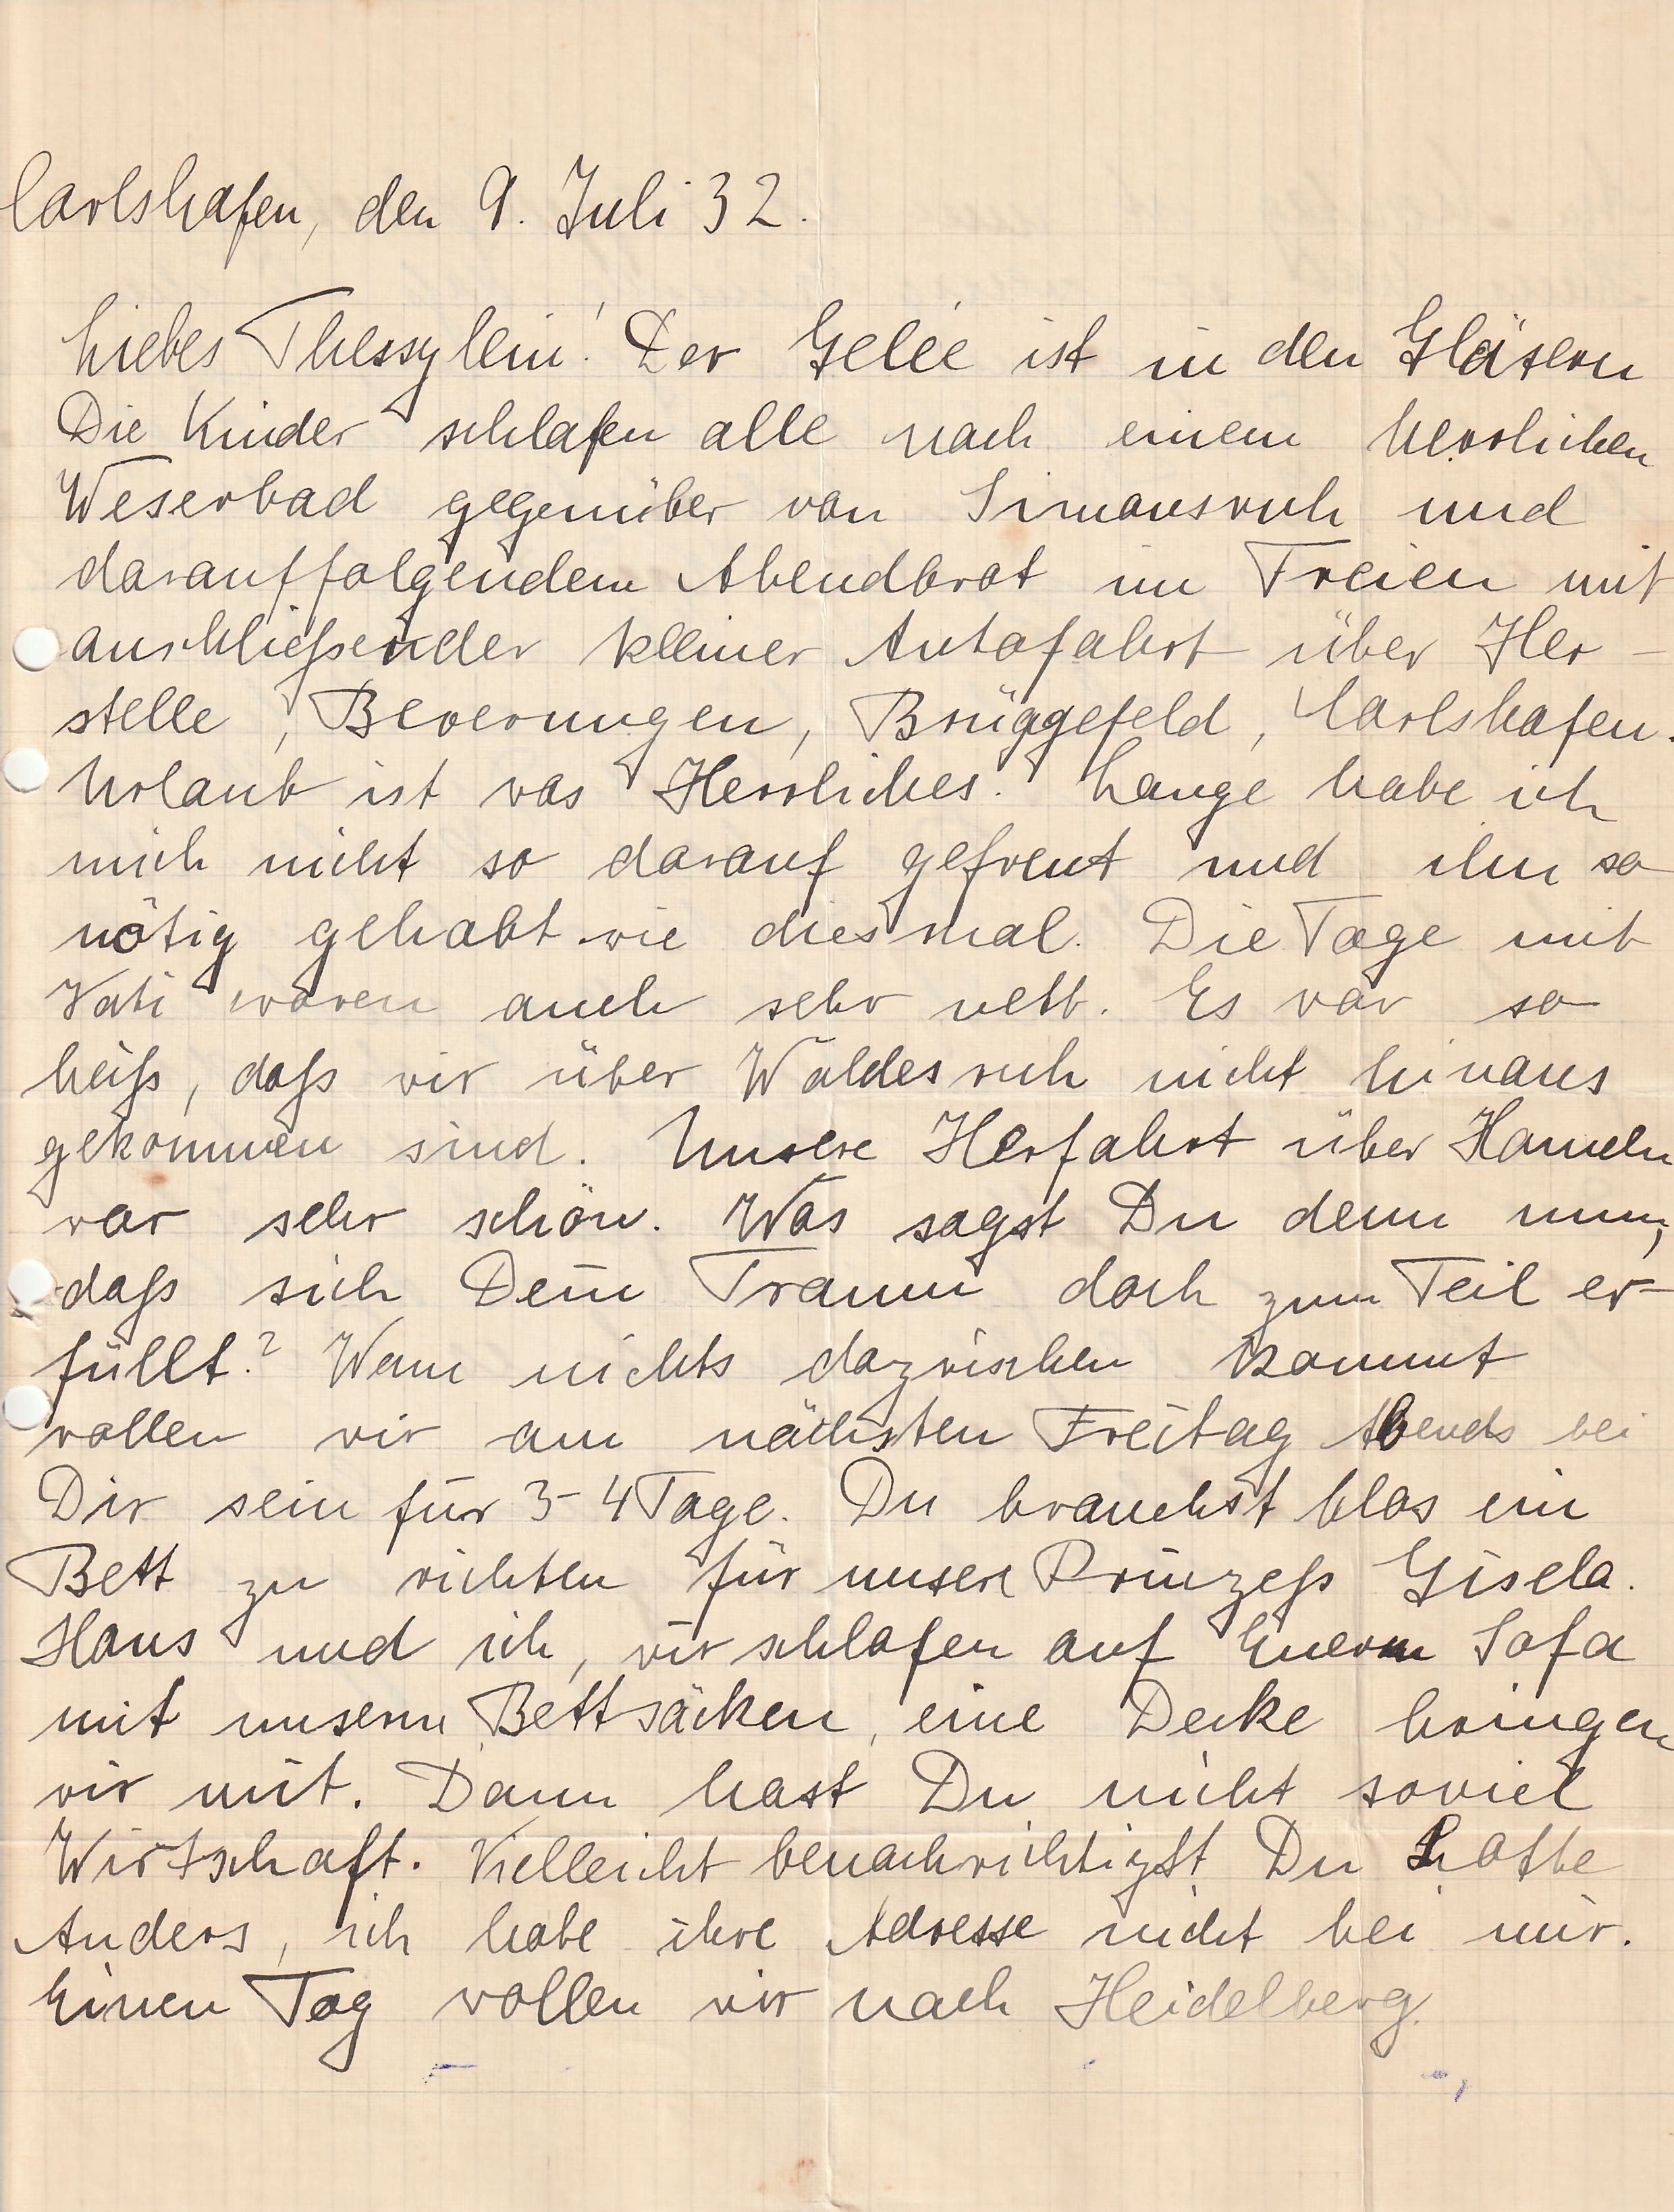 Carlshafen, den 9. Juli 32.
Liebes Thessylein! Der Gelée ist in den Gläsern
Die Kinder schlafen alle nach einem herrlichen
Weserbad gegenüber von Simonsruh und
darauffolgendem Abendbrot im Freien mit
anschließender kleiner Autofahrt über Her-
stelle, Beverungen, Brüggefeld, Carlshafen.
Urlaub ist was Herrliches. Lange habe ich
mich nicht so darauf gefreut und ihn so
nötig gehabt wie diesmal. Die Tage mit
Vati waren auch sehr nett. Es war so
heiß, daß wir über Waldesruh nicht hinaus
gekommen sind. Unsere Herfahrt über Hameln
war sehr schön. Was sagst Du denn nun,
daß sich Dein Traum doch zum Teil er-
füllt? Wenn nichts dazwischen kommt
wollen wir am nächsten Freitag Abends bei
Dir sein für 3-4 Tage. Du brauchst blos ein
Bett zu richten für unsere Prinzeß Gisela.
Hans und ich, wir schlafen auf Euerm Sofa
mit unsern Bettsäcken, eine Decke bringen
wir mit. Dann hast Du nicht soviel
Wirtschaft. Vielleicht benachrichtigst Du Lotte
Anders, ich habe ihre Adresse nicht bei mir.
Einen Tag wollen wir nach Heidelberg.